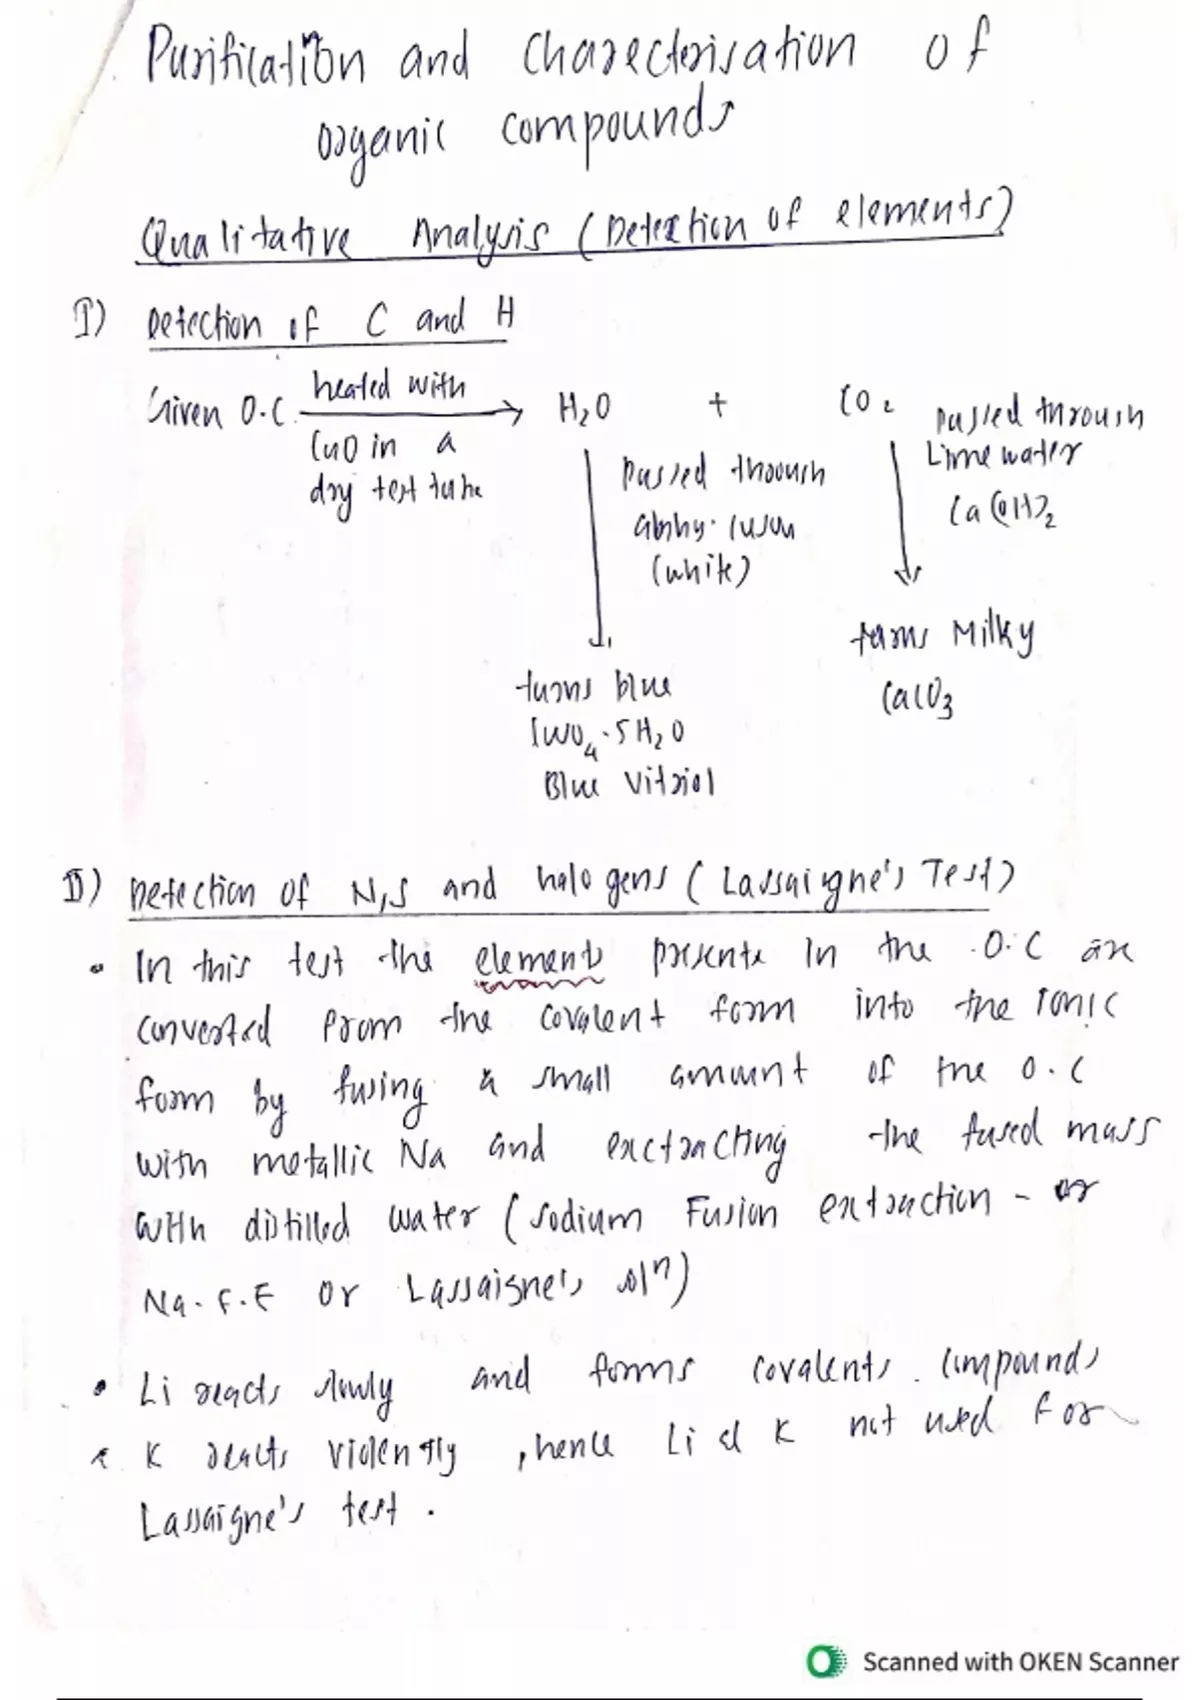 Purification and Charecterisation of
organic compounds
Qualitative Analysis (Detection of elements)
I) Detection of C and H
Given O.C. heated with CuO in a dry test tube → H₂O + CO₂
passed through Lime water Ca(OH)₂
passed through anhy. CuSO₄ (white)
turns Milky
CaCO₃
turns blue
CuSO₄·5H₂O
Blue Vitriol
II) Detection of N,S and halogens (Lassaigne's Test)
• In this test the elements presents in the O.C are
converted from the covalent form into the Ionic
form by fusing a small amount of the O.C
with metallic Na and exctracting the fused mass
with distilled water (sodium Fusion extraction - or
Na.F.E or Lassaigne's solⁿ)
• Li reacts slowly and forms covalents compounds
• K reacts violently, hence Li & K not used for
Lassaigne's test.
Scanned with OKEN Scanner